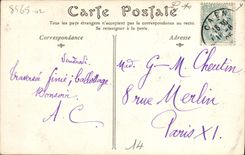 8565
Carte Postale
Tous les pays étrangers n'acceptent pas la correspondance au recto.
Se renseigner à la poste.
Correspondance
Adresse
Vendredi
Traversée Génie : Ballottage
Bonsoir
A. C.
Mad. G-M Cheutin
8 rue Merlin
Paris XI.
14